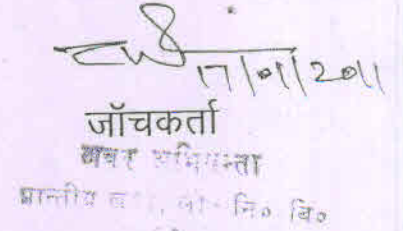 17/01/2011
जाँचकर्ता
अवर अभियन्ता
प्रान्तीय लो० नि० वि०